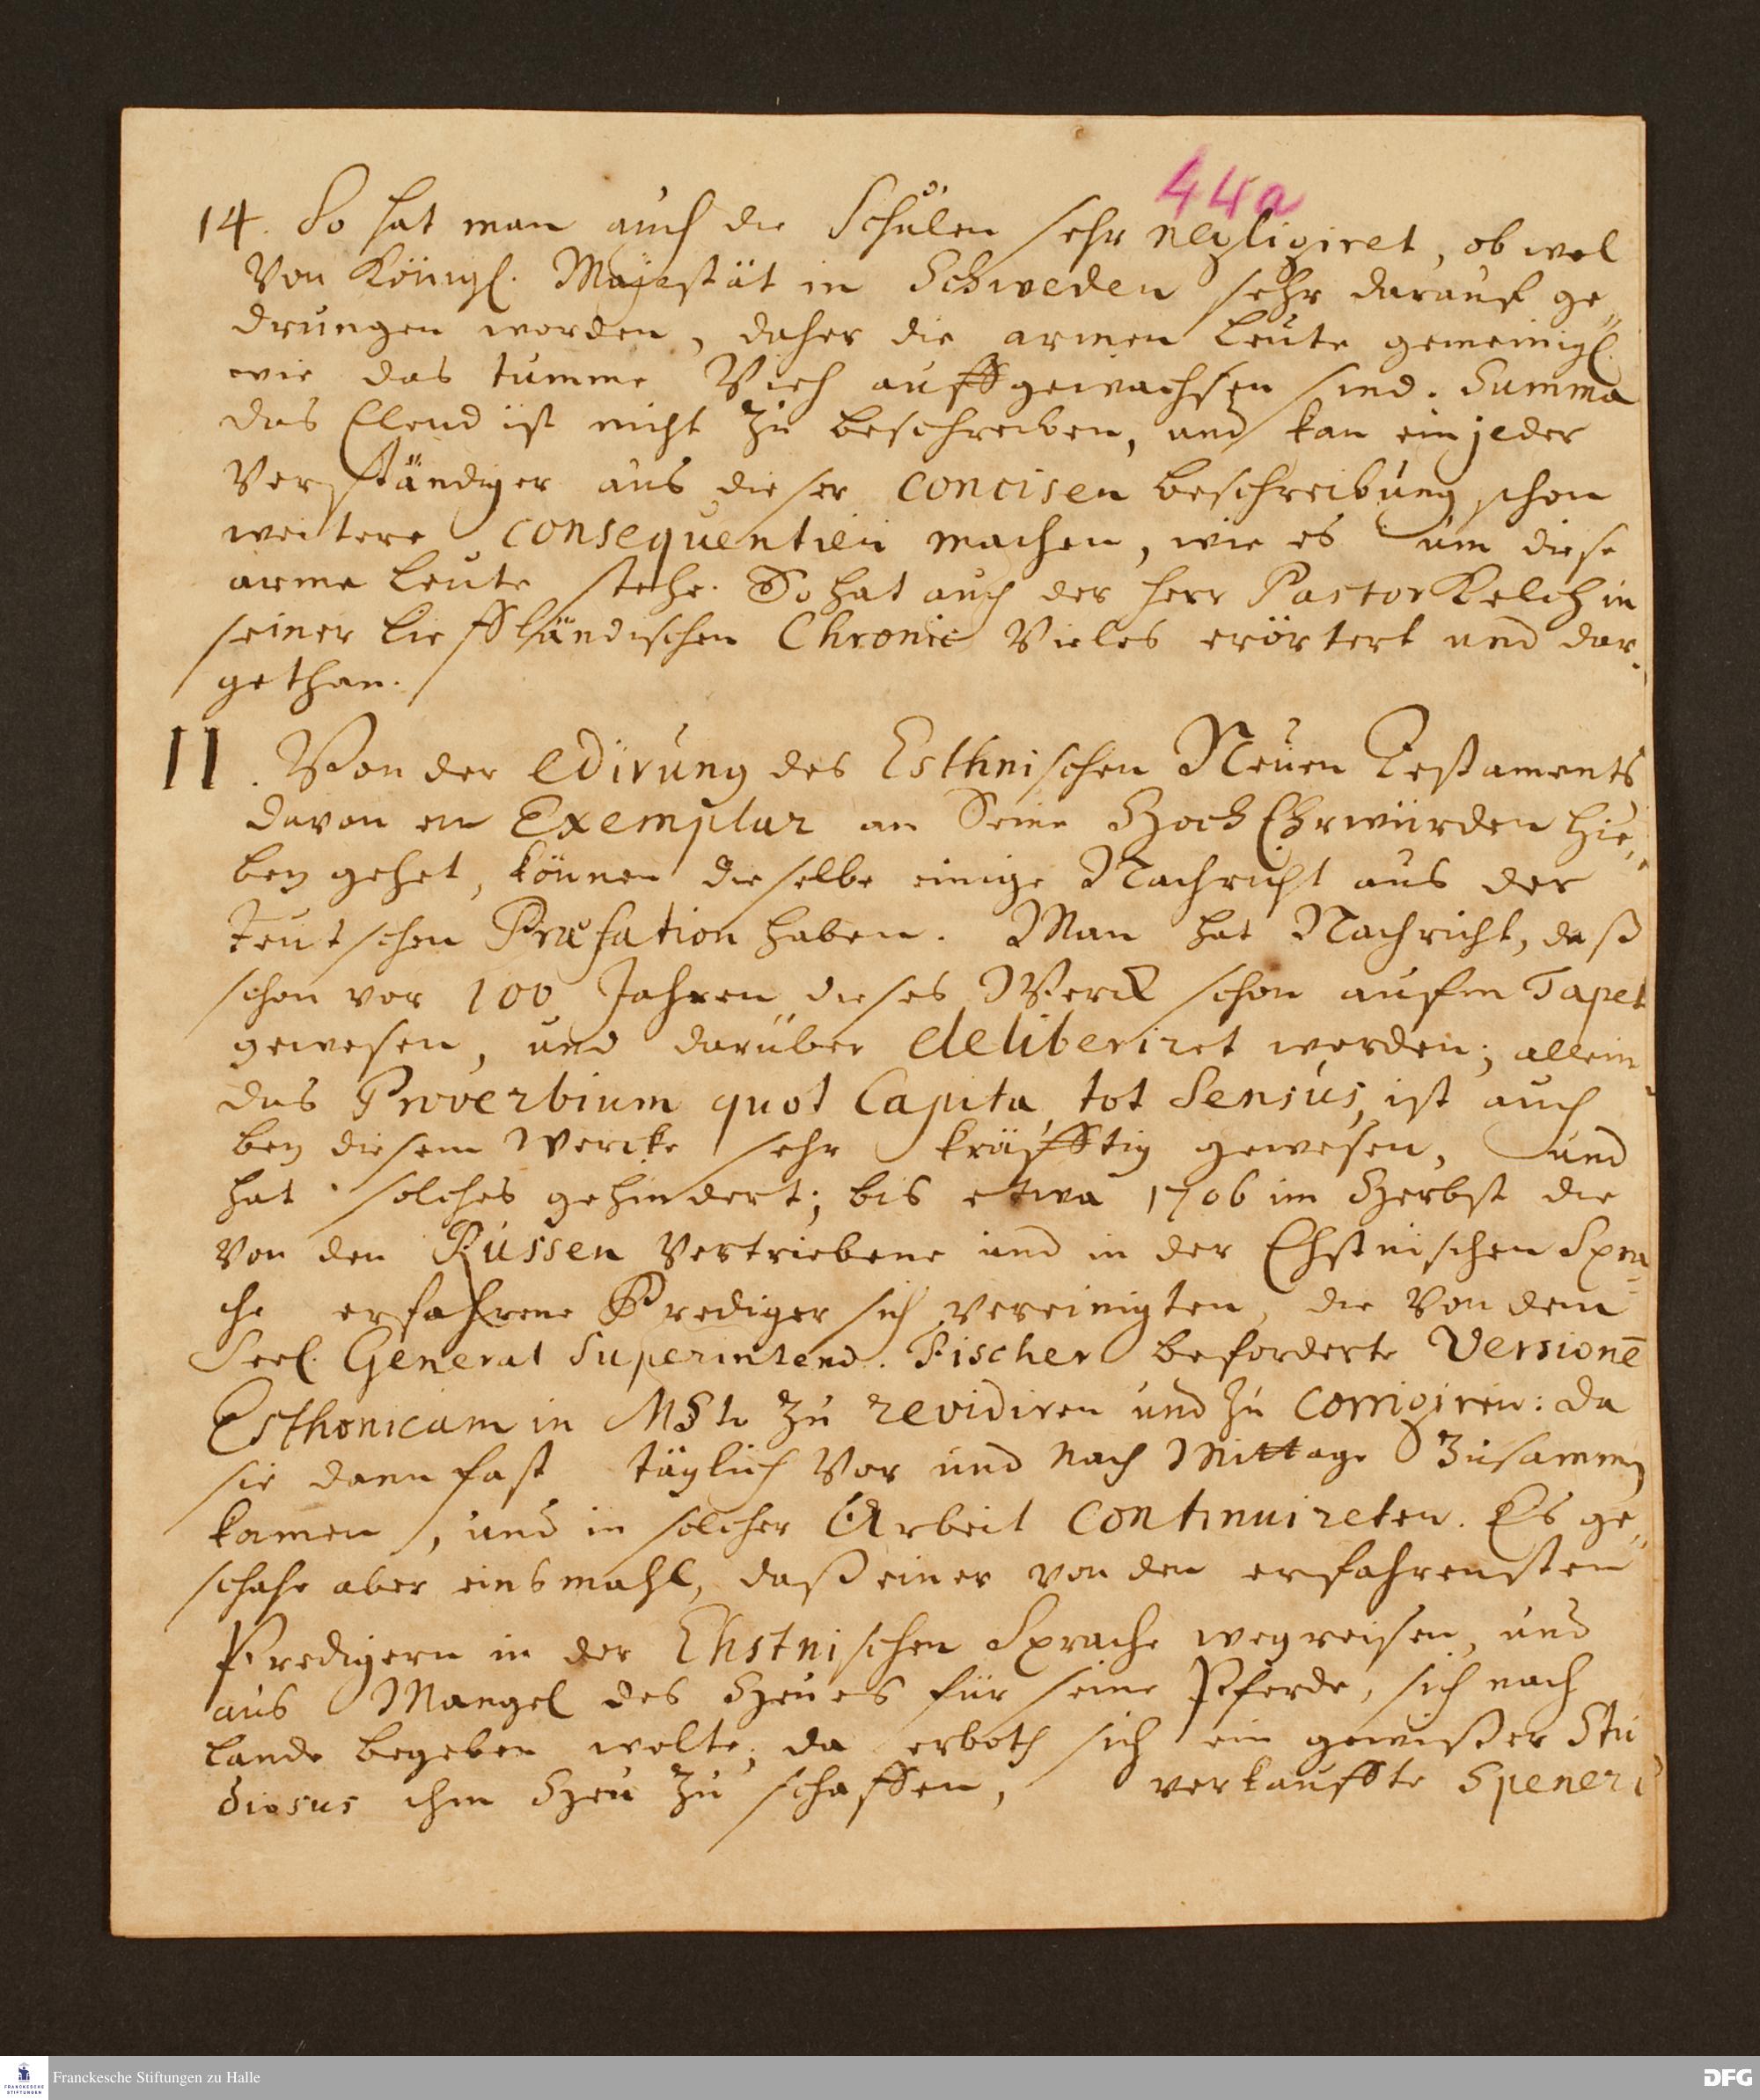 44a
14. So hat man auch die Schulen sehr negligiret, ob wol
Von Königl. Majestät in Schweden sehr darauf ge„
drungen worden, daher die armen Leute gemeinigl.
wie das tumme Vieh auffgewachsen sind. Summa
das Elend ist nicht zu beschreiben, und kan ein jeder
Verständiger aus dieser concisen beschreibung schon
weitere consequentien machen, wie es um diese
arme Leute stehe. So hat auch der Herr Pastor Kelch in
seiner Liefländischen Chronic Vieles erörtert und dar-
gethan.
II. Von der edirung des Esthnischen Neuen Testaments
davon ein Exemplar an Seine HochEhrwürden hie„
bey gehet, können dieselbe einige Nachricht aus der
Teutschen Præfation haben. Man hat Nachricht, daß
schon vor 100 Jahren dieses Werck schon aufm Tapet
gewesen, und darüber deliberiret worden; allein
das Proverbium quot Capita tot Sensus, ist auch
bey diesem Wercke sehr kräfftig gewesen, und
hat solches gehindert; bis etwa 1706 im Herbst die
Von den Russen Vertriebene und in der Ehstnischen Spra-
che erfahrene Prediger sich vereinigten, die Von dem
Seel. General Superintend. Fischer beforderte Versionē
Esthonicam in MSto zu revidiren und zu corrigiren: da
sie dann fast täglich Vor und Nach Mittage zusammen
kamen, und in solcher Arbeit continuireten. Es ge„
schahe aber einsmahl, daß einer von den erfahrensten
Predigern in der Ehstnischen Sprache wegreisen, und
aus Mangel des Heues für seine Pferde, sich nach
Lande begeben wolte; da erboth sich ein gewißer Stu
diosus ihm Heu zu schaffen, verkauffte Speneri
Franckesche Stiftungen zu Halle
FRANCKESCHE
STIFTUNGEN
DFG